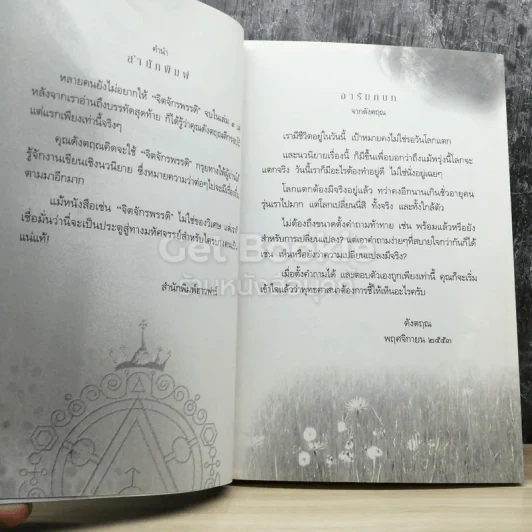 คำนำ
สำนักพิมพ์
หลายคนยังไม่อยากให้ “จิตจักรพรรดิ” จบในเล่ม
หลังจากเราอ่านถึงบรรทัดสุดท้าย ก็ได้รู้ว่าคุณดังตฤณ
แต่แรกเพียงเท่านี้จริงๆ
คุณดังตฤณคิดจะใช้ “จิตจักรพรรดิ” กรุยทางให้ผู้อ่านได้
รู้จักงานเขียนเชิงนวนิยาย ซึ่งหมายความว่าต่อๆไปจะมีเรื่อง
ตามมาอีกมาก
แม้หนังสือเช่น “จิตจักรพรรดิ” ไม่ใช่ของวิเศษ แต่
เชื่อมั่นว่านี่จะเป็นประตูสู่ทางมหัศจรรย์สำหรับใครบางคนเป็น
แน่แท้!
สำนักพิมพ์ฮาวฟาร์
อารัมภบท
จากดังตฤณ
เรามีชีวิตอยู่ในวันนี้ เป้าหมายคงไม่ใช่รอวันโลกแตก
และนวนิยายเรื่องนี้ ก็มีขึ้นเพื่อบอกว่าถึงแม้พรุ่งนี้โลกจะ
แตกจริง วันนี้เราก็มีอะไรต้องทำอยู่ดี ไม่ใช่นั่งอยู่เฉยๆ
โลกแตกต้องมีจริงอยู่แล้ว ทว่าคงอีกนานเกินชั่วอายุคน
รุ่นเราไปมาก แต่โลกเปลี่ยนนี่สิ ทั้งจริง และทั้งใกล้ตัว
ไม่ต้องถึงขนาดตั้งคำถามท้าทาย เช่น พร้อมแล้วหรือยัง
สำหรับการเปลี่ยนแปลง? แต่เอาคำถามง่ายๆที่สบายใจกว่ากันก็ได้
เช่น เห็นหรือยังว่าความเปลี่ยนแปลงมีจริง?
เมื่อตั้งคำถามได้ และตอบตัวเองถูกเพียงเท่านี้ คุณก็จะเริ่ม
เข้าใจแล้วว่าพุทธศาสนาต้องการชี้ให้เห็นอะไรครับ
ดังตฤณ
พฤศจิกายน ๒๕๕๓
Get Bookie
ร้านหนังสือบุ๊คกี้